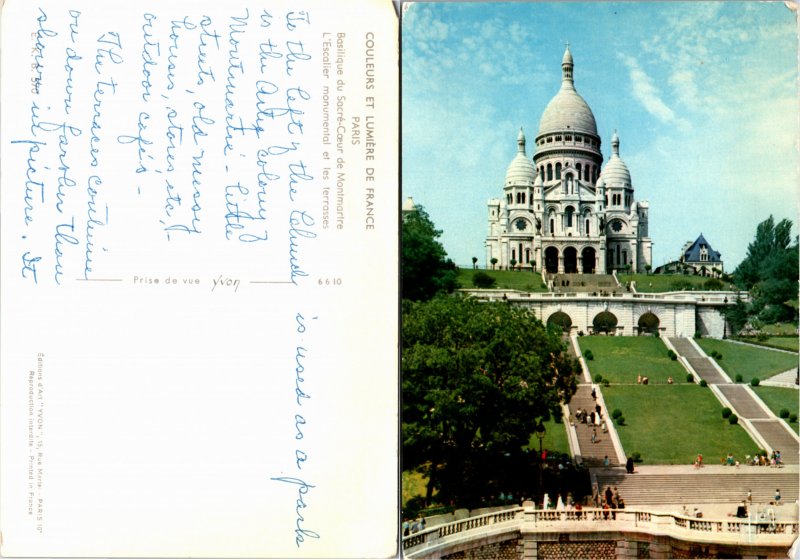 COULEURS ET LUMIÈRE DE FRANCE
PARIS
Basilique du Sacré-Cœur de Montmartre
L'Escalier monumental et les terrasses
6610
Prise de vue Yvon
To the left of the Church
is the Arty Colony of
Montmartre - little
streets, old mussy
houses, stores, etc, -
outdoor cafés -
The terraces continue
on down farther than
shown in picture. It
is used as a park
Éditions d'Art "YVON", 15, Rue Martel - PARIS 10ᵉ
Reproduction interdite - Printed in France